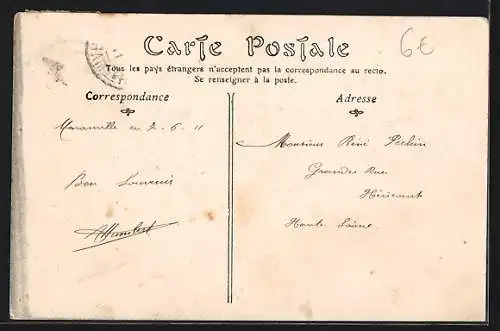 Carte Postale
6€
Tous les pays étrangers n'acceptent pas la correspondance au recto.
Se renseigner à la poste.
Correspondance
le 2-6-11
Bon Souvenir
Adresse
Monsieur René
Grande Rue
Héricourt
Haute Saône